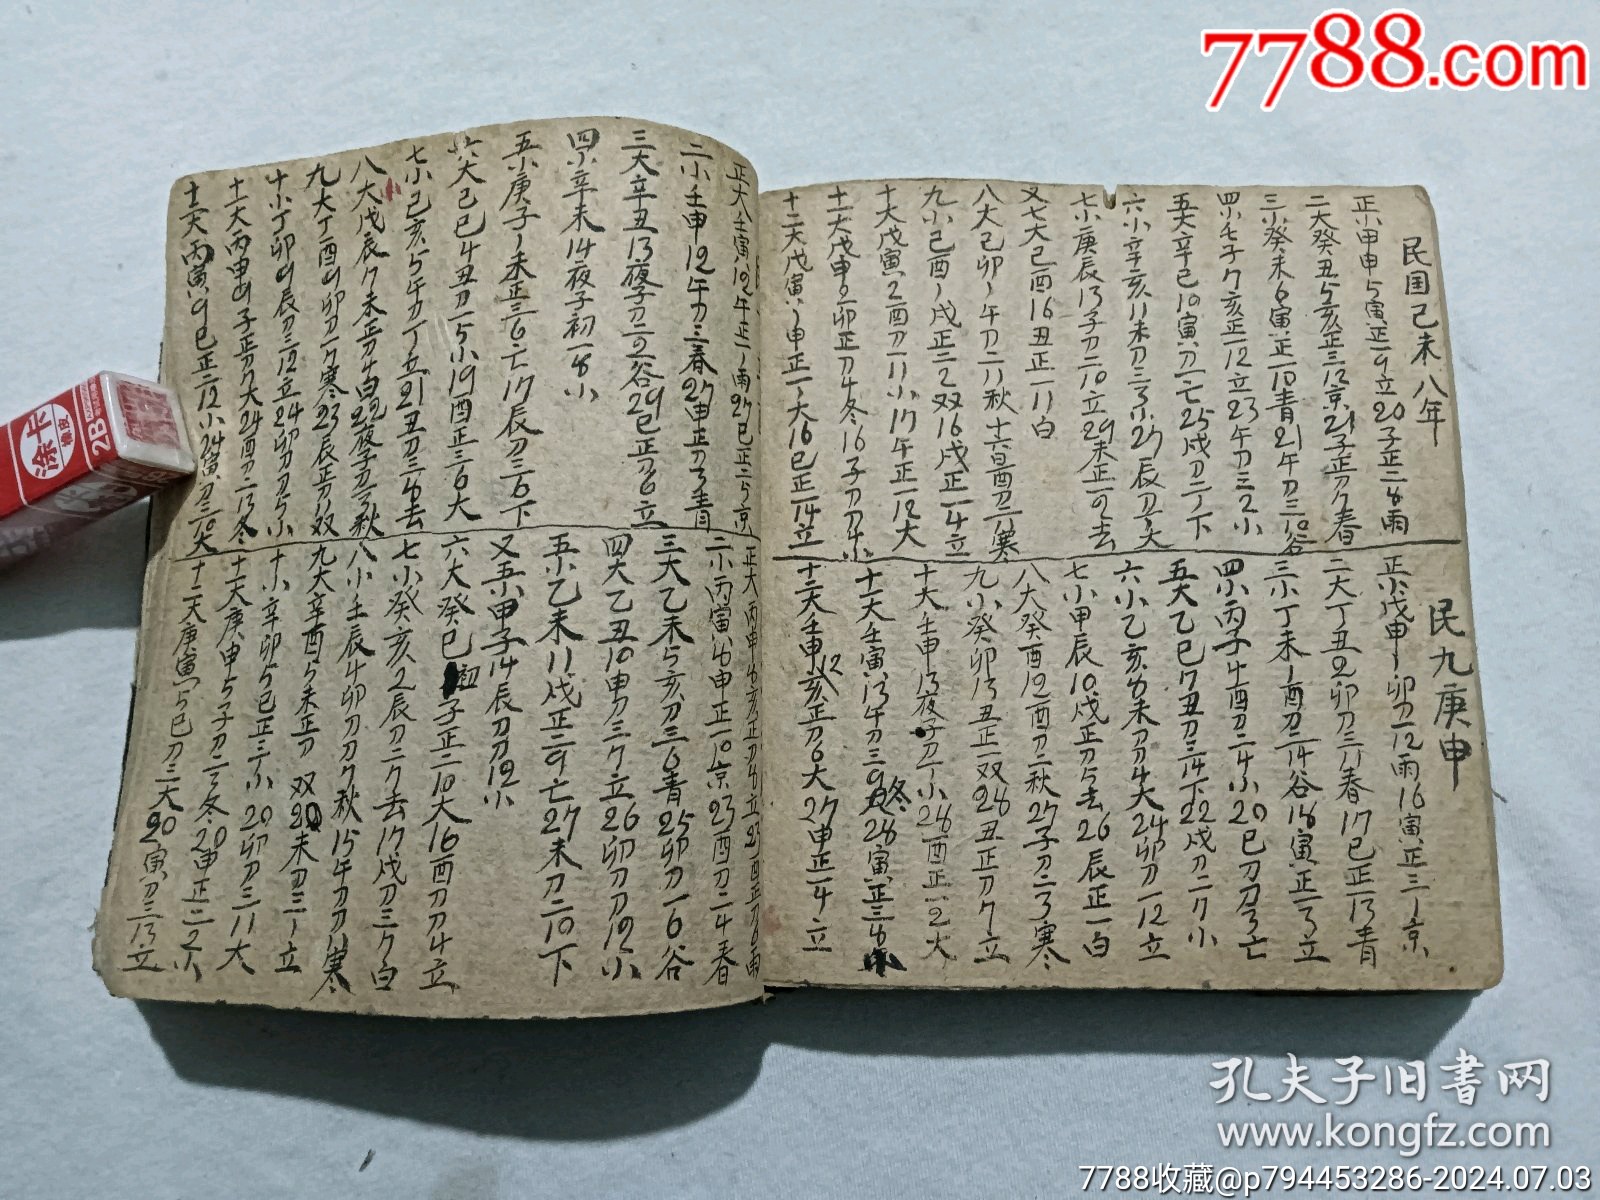 7788.com
民国己未八年
正小甲申5寅正一9立20子正二8雨
二大癸丑5亥正三12京21子正刀7春
三小癸未6寅正一10青21午刀三10谷
四小壬子7亥正一12立23午刀三2小
五大辛巳10寅刀一亡25戌刀二丁下
六小辛亥11未刀三3小27辰刀
七小庚辰13子刀二10立29未正一2去
又七大己酉16丑正一11白
八大己卯1午刀二八秋十六日酉刀二1寒
九小己酉1戌正二2双16戌正一4立
十大戊寅2酉刀一11小17午正一12大
十一大戊申2卯正刀4冬16子刀刀4小
十二大戊寅1申正一1大16巳正一14立
民九庚申
正小戊申1卯刀一12雨16寅正三1京
二大丁丑2卯刀三八春17巳正一13青
三小丁未1酉刀二14谷18寅正一3立
四小丙子4酉刀二4小20巳刀刀3亡
五大乙巳7丑刀三14下22戌刀二7小
六小乙亥8未刀刀4大24卯刀一12立
七小甲辰10戌正刀5去26辰正一白
八大癸酉12酉刀二秋27子刀二3寒
九小癸卯13丑正一双28丑正刀7立
十大壬申13夜子刀二丁小28酉正一2大
十一大壬寅13午刀三9冬28寅正三8小
十二大壬申12亥正刀6大27申正一4立
正大壬寅12午正一1雨27巳正二5京
二小壬申12午刀三春27申正刀3青
三大辛丑13夜子刀二2谷29巳正刀6立
四小辛未14夜子初一8小
五小庚子1未正三6亡17辰刀三6下
六大己巳4丑刀一5小19酉正三6大
七小己亥5午刀丁立21丑刀三8去
八大戊辰7未正刀4白22夜子刀3秋
九大丁酉9卯刀一7寒23辰正刀11双
十小丁卯9辰刀三12立24卯刀刀5小
十一大丙申9子正刀7大24酉刀二13冬
十二大丙寅9巳正二12小24寅刀三10大
正大丙申8亥正刀8立23酉正刀6雨
二小丙寅8申正一10京23酉刀二4春
三大乙未5亥刀三6青25卯刀一6谷
四大乙丑10申刀三7立26卯刀刀12小
五小乙未11戌正二9亡27未刀二10下
又五小甲子14辰刀刀12小
六大癸巳初子正二10大16酉刀刀4立
七小癸亥2辰刀二7去17戌刀三7白
八小壬辰4卯刀刀7秋15午刀刀1寒
九大辛酉5未正刀双20未刀三1立
十小辛卯5巳正三丁小20卯刀三11大
十一大庚申5子刀二3冬20申正二2小
十二大庚寅5巳刀三大20寅刀三13立
涂卡
橡皮
2B
孔夫子旧書网
www.kongfz.com
7788收藏@p794453286-2024.07.03